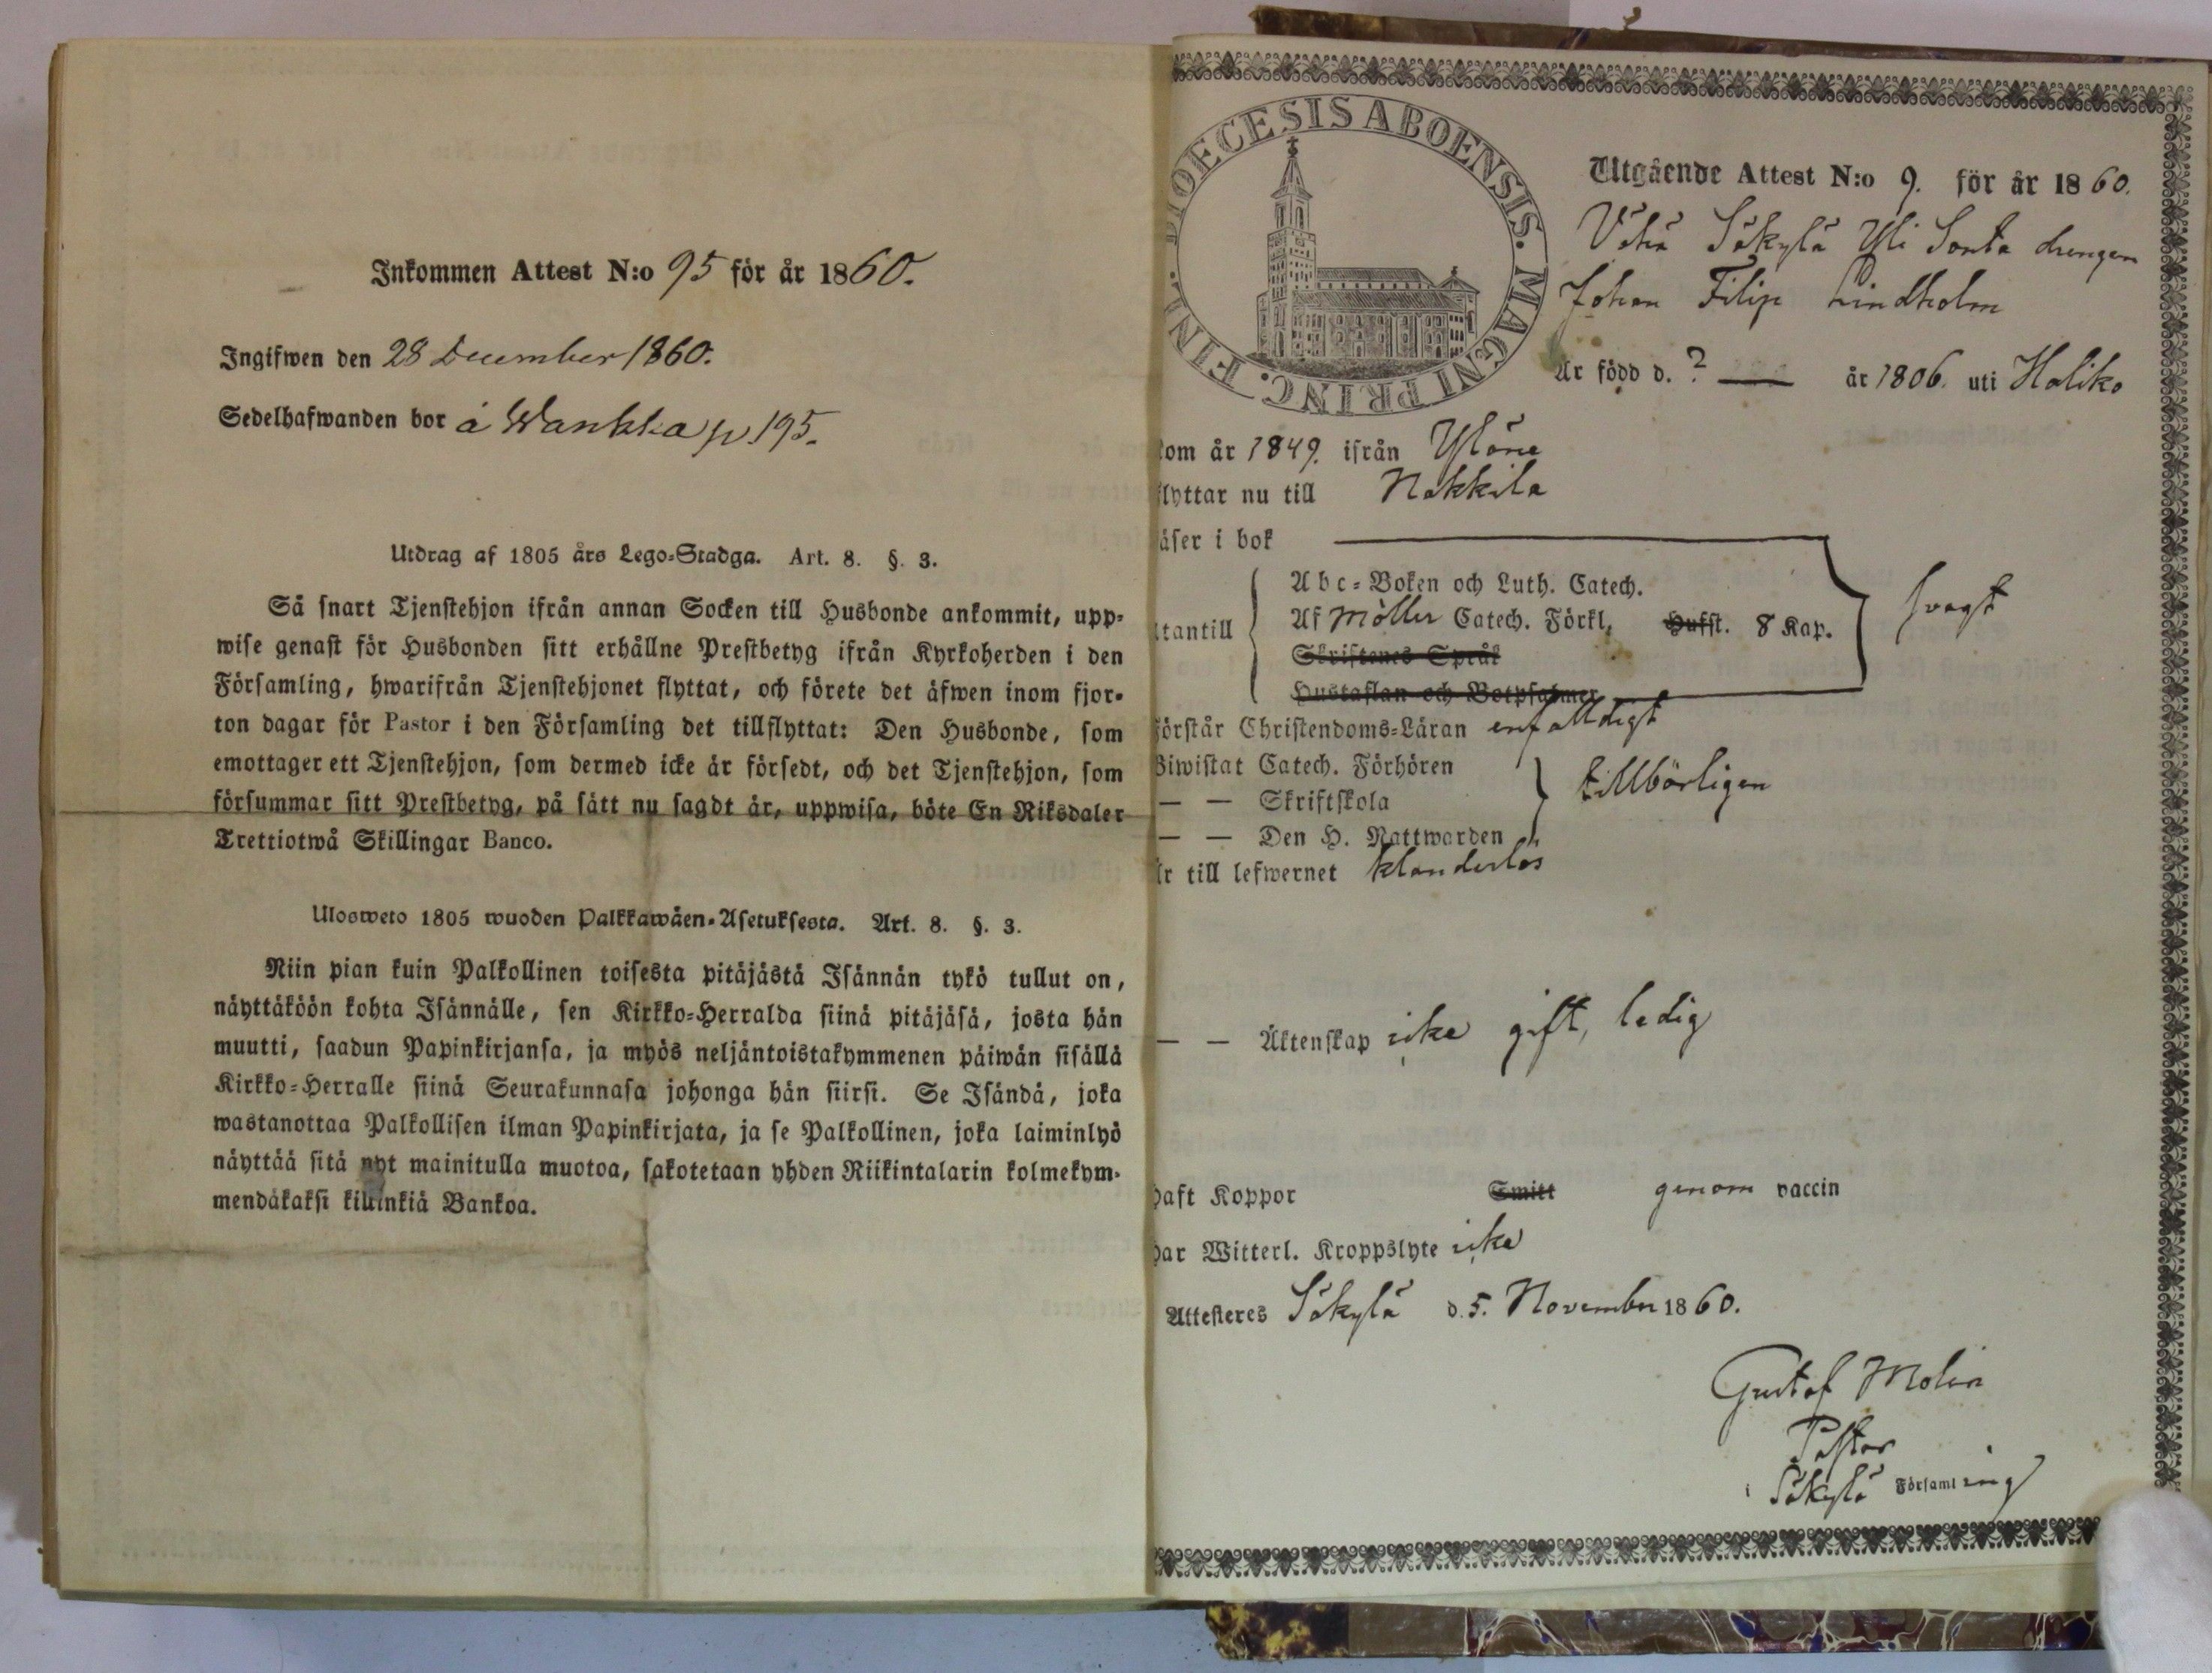 Inkommen Attest N:o 95 för år 1860.
Ingifwen den 28 December 1860.
Sedelhafwanden bor å Wankka p. 195.
Utdrag af 1805 års Lego-Stadga. Art. 8. §. 3.
Så snart Tjenstehjon ifrån annan Socken till Husbonde ankommit, upp-
wise genast för Husbonden sitt erhållne Prestbetyg ifrån Kyrkoherden i den
Församling, hwarifrån Tjenstehjonet flyttat, och förete det äfwen inom fjor-
ton dagar för Pastor i den Församling det tillflyttat: Den Husbonde, som
emottager ett Tjenstehjon, som dermed icke är försedt, och det Tjenstehjon, som
försummar sitt Prestbetyg, på sätt nu sagdt är, uppwisa, böte En Riksdaler
Trettiotwå Skillingar Banco.
Ulosweto 1805 wuoden Palkkawäen-Asetuksesta. Art. 8. §. 3.
Niin pian kuin Palkollinen toisesta pitäjästä Isännän tykö tullut on,
näyttäköön kohta Isännälle, sen Kirkko-Herralda siinä pitäjäsä, josta hän
muutti, saadun Papinkirjansa, ja myös neljäntoistakymmenen päiwän sisällä
Kirkko-Herralle siinä Seurakunnasa johonga hän siirsi. Se Isändä, joka
wastanottaa Palkollisen ilman Papinkirjata, ja se Palkollinen, joka laiminlyö
näyttää sitä nyt mainitulla muotoa, sakotetaan yhden Riikintalarin kolmekym-
mendäkaksi killinkiä Bankoa.
DIOECESIS ABOENSIS. MAGNI PRINC. FINL.
Utgående Attest N:o 9. för år 1860.
Vähä Säkylä Yli Sonta drengen
Johan Filip Lindholm
Är född d. ? — år 1806. uti Haliko
kom år 1849. ifrån Yläne
flyttar nu till Nakkila
äser i bok
Abc-Boken och Luth. Catech.
tantill Af Möller Catech. Förkl. Hufst. 8 Kap. svagt
Skriftenes Språk
Hustaflan och Botpsalmer
Förstår Christendoms-Läran enfalldigt
Biwistat Catech. Förhören
— — Skriftskola tillbörligen
— — Den H. Nattwarden
Är till lefwernet klanderlös
— — Äktenskap icke gift, ledig
haft Koppor Smitt genom vaccin
har Witterl. Kroppslyte icke
Attesteres Säkylä d. 5. November 1860.
Gustaf Molin
Pastor
i Säkylä Församling